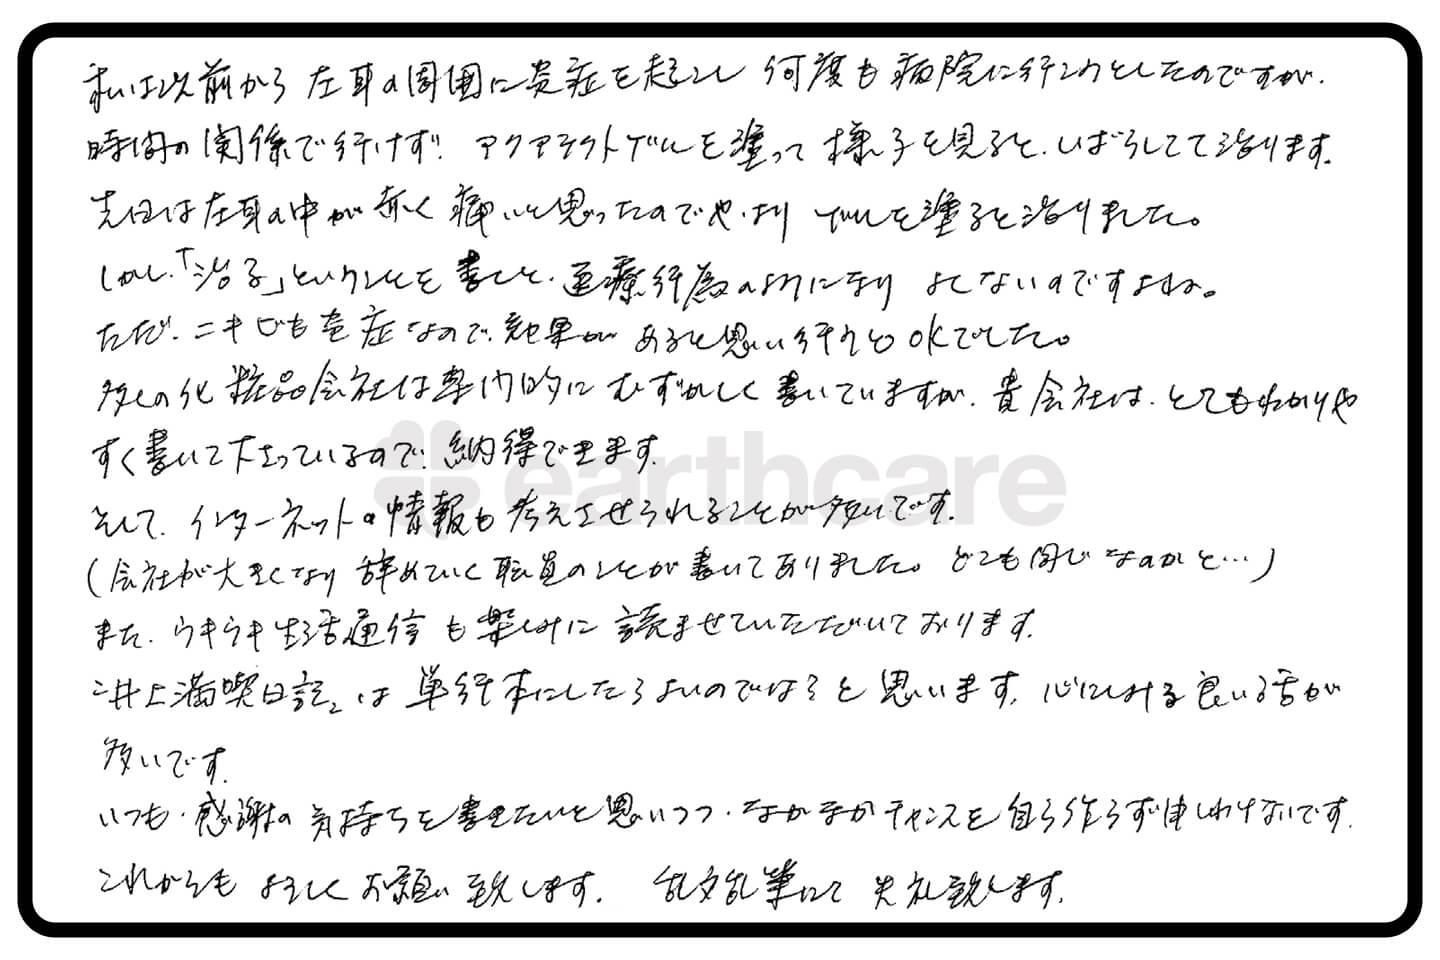 私は以前から左耳の周囲に炎症を起こし何度も病院に行こうとしたのですが、
時間の関係で行けず、アクアテクトゲルを塗って様子を見ると、しばらくして治ります。
先日は左耳の中が赤く痛いと思ったのでやはりゲルを塗ると治りました。
しかし、「治る」ということを書くと、医療行為のようになりよくないのですよね。
ただ、ニキビも炎症なので、効果があると思い行うとOKでした。
多くの化粧品会社は専門的にむずかしく書いていますが、貴会社は、とてもわかりや
すく書いて下さっているので、納得できます。
earthcare
そして、インターネットの情報も考えさせられることが多いです。
(会社が大きくなり辞めていく職員のことが書いてありました。どこも同じなのかと…)
また、ウキウキ生活通信も楽しみに読ませていただいております。
井上満喫日記は単行本にしたらよいのではろと思います。心にしみる良い話が
多いです。
いつも、感謝の気持ちを書きたいと思いつつ、なかなかチャンスを自ら作らず申しわけないです。
これからもよろしくお願い致します。 乱文乱筆にて失礼致します。